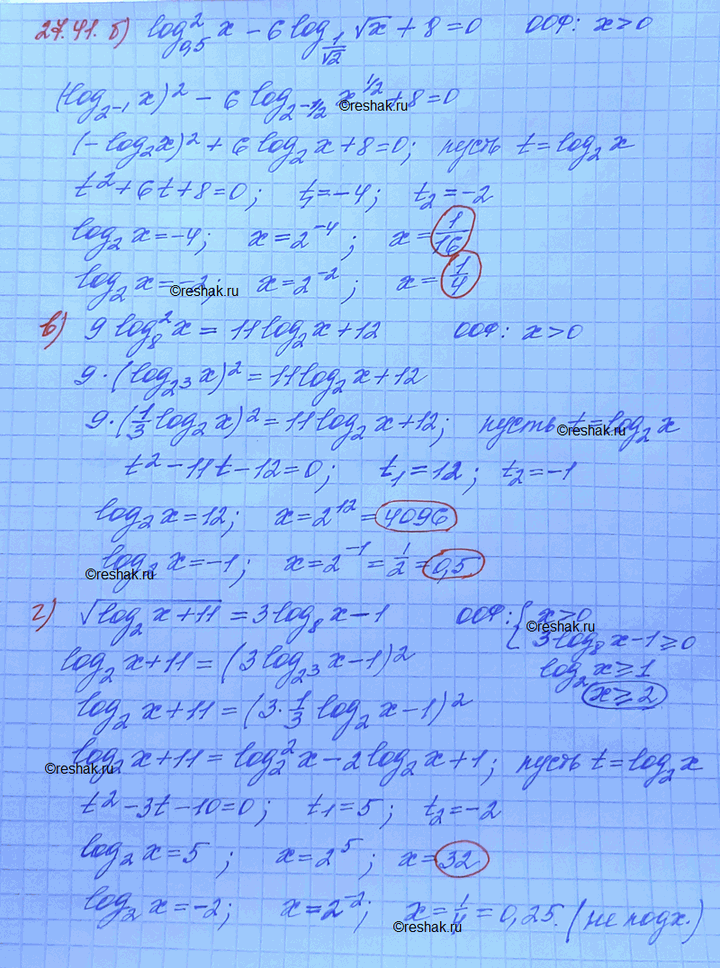 27.41. б) log²₀,₅ x − 6 log_{1/√2} √x + 8 = 0 ООФ: x > 0
(log_{2⁻¹} x)² − 6 log_{2^{-1/2}} x^{1/2} + 8 = 0
©reshak.ru
(−log₂x)² + 6 log₂ x + 8 = 0; пусть t = log₂ x
t² + 6t + 8 = 0; t₁ = −4; t₂ = −2
log₂ x = −4; x = 2⁻⁴; x = 1/16
log₂ x = −2; x = 2⁻²; x = 1/4
©reshak.ru
в) 9 log₈² x = 11 log₂ x + 12 ООФ: x > 0
9 · (log_{2³} x)² = 11 log₂ x + 12
9 · (1/3 log₂ x)² = 11 log₂ x + 12; пусть t = log₂ x
©reshak.ru
t² − 11t − 12 = 0; t₁ = 12; t₂ = −1
log₂ x = 12; x = 2¹² = 4096
log₂ x = −1; x = 2⁻¹ = 1/2 = 0,5
©reshak.ru
г) √(log₂ x + 11) = 3 log₈ x − 1 ООФ: { x > 0
©reshak.ru
3 log₈ x − 1 ≥ 0
log₂ x + 11 = (3 log_{2³} x − 1)² log₂ x ≥ 1
x ≥ 2
log₂ x + 11 = (3 · 1/3 log₂ x − 1)²
log₂ x + 11 = log₂² x − 2 log₂ x + 1; пусть t = log₂ x
©reshak.ru
t² − 3t − 10 = 0; t₁ = 5; t₂ = −2
log₂ x = 5; x = 2⁵; x = 32
log₂ x = −2; x = 2⁻²; x = 1/4 = 0,25. (не подх.)
©reshak.ru